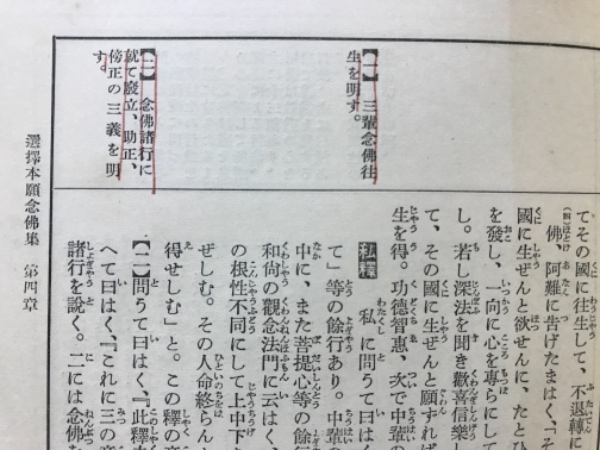 【一】 三輩念佛往
生を明す。
【二】 念佛諸行に
就て廢立、助正、
傍正の三義を明
す。
てその國に往生して、不退轉に
佛、阿難に告げたまはく、『そ
國に生ぜんと欲せんに、たとひ
を發し、一向に心を專らにして
し。若し深法を聞き歡喜信樂し
て、その國に生ぜんと願すれば
生を得。功德智惠、次で中輩の
私釋 私に問うて曰はく
て」等の餘行あり。中輩の
中に、また菩提心等の餘行
和尙の觀念法門に云はく、
の根性不同にして上中下
ぜしむ。その人命終らんと
得せしむ」と。この釋の意
【二】問うて曰はく、『此釋
へて曰はく、『これに三の意
諸行を說く。二には念佛を
選擇本願念佛集 第四章